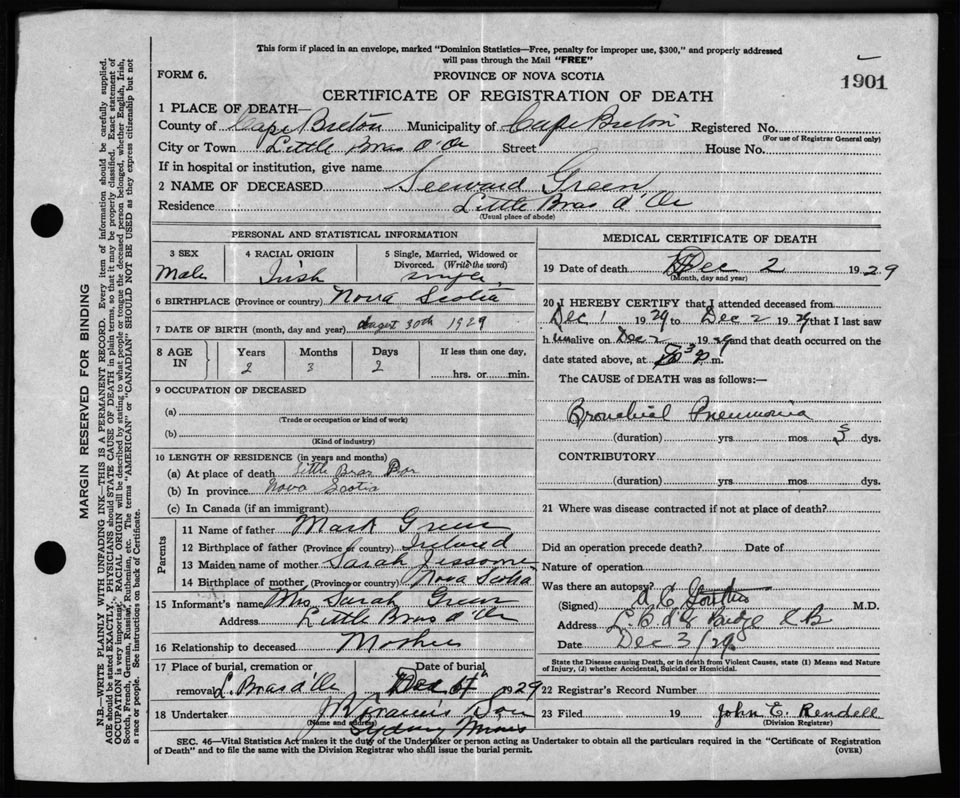 This form if placed in an envelope, marked "Dominion Statistics—Free, penalty for improper use, $300," and properly addressed
will pass through the Mail "FREE"
FORM 6.
PROVINCE OF NOVA SCOTIA
1901
CERTIFICATE OF REGISTRATION OF DEATH
1 PLACE OF DEATH—
County of Cape Breton Municipality of Cape Breton Registered No.
(For use of Registrar General only)
City or Town Little Bras d'Or Street House No.
If in hospital or institution, give name
2 NAME OF DECEASED Seeward Green
Residence Little Bras d'Or
(Usual place of abode)
PERSONAL AND STATISTICAL INFORMATION
3 SEX Male
4 RACIAL ORIGIN Irish
5 Single, Married, Widowed or Divorced. (Write the word) single
6 BIRTHPLACE (Province or country) Nova Scotia
7 DATE OF BIRTH (month, day and year) August 30th 1929
8 AGE IN
Years Months Days If less than one day,
2 3 2 hrs. or min.
9 OCCUPATION OF DECEASED
(a)
(Trade or occupation or kind of work)
(b)
(Kind of industry)
10 LENGTH OF RESIDENCE (in years and months)
(a) At place of death Little Bras Dor
(b) In province Nova Scotia
(c) In Canada (if an immigrant)
Parents
11 Name of father Mark Green
12 Birthplace of father (Province or country) Ireland
13 Maiden name of mother Sarah
14 Birthplace of mother (Province or country) Nova Scotia
15 Informant's name Mrs Sarah Green
Address Little Bras d'Or
16 Relationship to deceased Mother
17 Place of burial, cremation or Date of burial
removal L. Bras d'Or Dec 1929
18 Undertaker
(Name and address)
Sydney Mines
MEDICAL CERTIFICATE OF DEATH
19 Date of death Dec 2 1929
(Month, day and year)
20 I HEREBY CERTIFY that I attended deceased from
Dec 1 1929 to Dec 2 1929 that I last saw
h im alive on Dec 2 1929 and that death occurred on the
date stated above, at m.
The CAUSE of DEATH was as follows:—
Bronchial Pneumonia
(duration) yrs. mos. 3 dys.
CONTRIBUTORY
(duration) yrs. mos. dys.
21 Where was disease contracted if not at place of death?
Did an operation precede death? Date of
Nature of operation
Was there an autopsy?
(Signed) M.D.
Address
Date Dec 3/29
State the Disease causing Death, or in death from Violent Causes, state (1) Means and Nature
of Injury, (2) whether Accidental, Suicidal or Homicidal.
22 Registrar's Record Number
23 Filed 19 John E. Rendell
(Division Registrar)
SEC. 46—Vital Statistics Act makes it the duty of the Undertaker or person acting as Undertaker to obtain all the particulars required in the "Certificate of Registration
of Death" and to file the same with the Division Registrar who shall issue the burial permit.
(OVER)
MARGIN RESERVED FOR BINDING
N.B.—WRITE PLAINLY WITH UNFADING INK—THIS IS A PERMANENT RECORD. Every item of information should be carefully supplied.
AGE should be stated EXACTLY. PHYSICIANS should STATE CAUSE OF DEATH in plain terms, so that it may be properly classified. Exact statement of
OCCUPATION is very important. RACIAL ORIGIN will be described by stating to what people or tongue the deceased person belonged, whether English, Irish,
Scotch, French, German, Russian, Ruthenian, etc. The terms "AMERICAN" or "CANADIAN" SHOULD NOT BE USED as they express citizenship but not
a race or people. See instructions on back of Certificate.